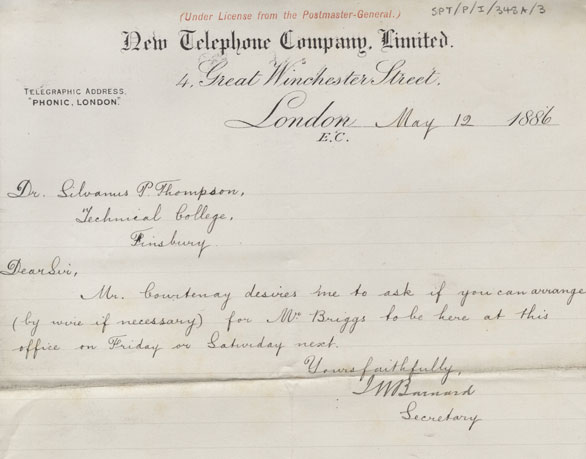 (Under License from the Postmaster-General.)
SPT/P/I/343A/3
New Telephone Company, Limited.
4, Great Winchester Street,
TELEGRAPHIC ADDRESS,
"PHONIC, LONDON."
London May 12 1886
E.C.
Dr. Silvanus P. Thompson,
Technical College,
Finsbury.
Dear Sir,
Mr. Courtenay desires me to ask if you can arrange
(by wire if necessary) for Mr Briggs to be here at this
office on Friday or Saturday next.
Yours faithfully,
Barnard
Secretary